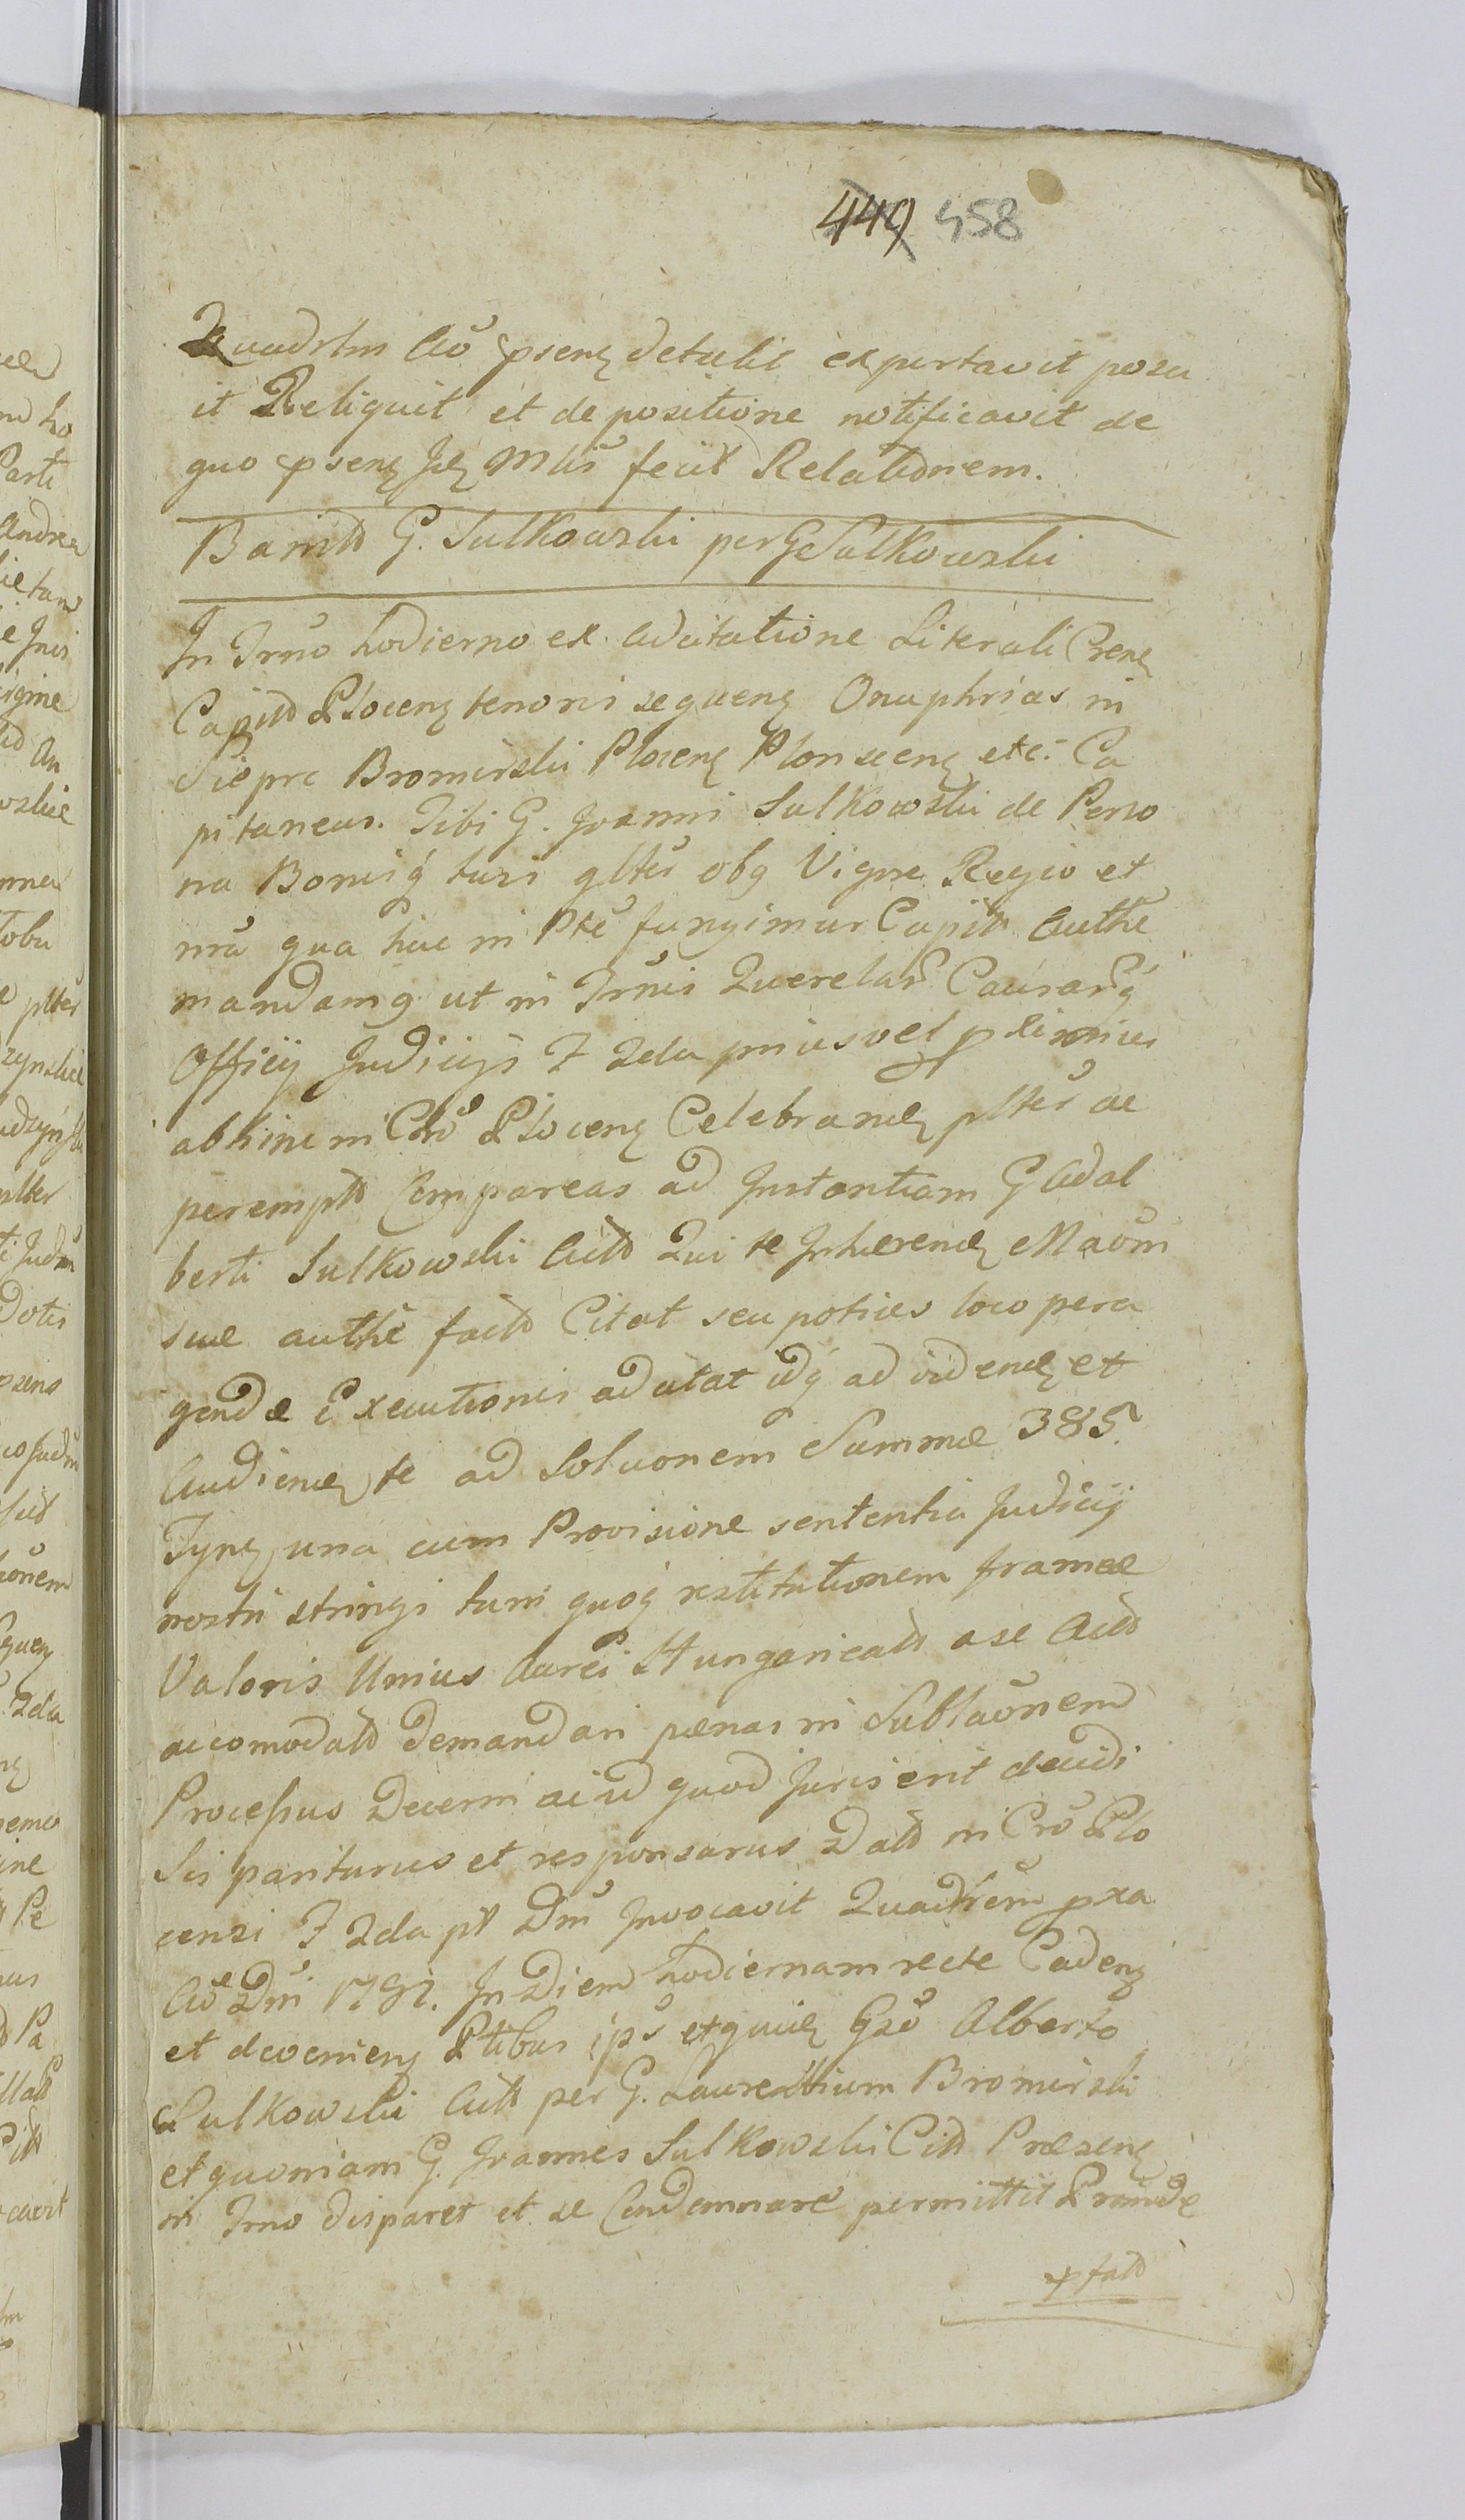 449 458
Quadrlm Aō psens detulit exportavit posu
it Reliquit et de positione notificavit de
quo psens Jdz Mtis̄ fecit Relationem.
Bannitō G. Sulkowski per G Sulkowski
In Trmō hodierno ex adcitatione Literali Crens
Capitō Plocens tenoris sequens Onuphrius in
Sieprc Bromirski Plocens Plonscens etc. Ca
pitaneus. Tibi G. Joanni Sulkowski de Perso
na Bonisq tuis gltēr obq Vigore Regio et
nrā qua hac in Ptē fungimur Capitli Authē
mandamq ut in Trmis Querelar̄ Causar̄q
Officij Judicijs F 2da prius vel p̄ximius
abhinc in Cro Plocens Celebrands pltēr ac
perempto Compareas ad Instantiam G Adal
berti Sulkowski Acto Qui te Inhærendo Maōni
suæ authē facto Citat seu potius loco pera
gendæ Executionis adcitat idq ad videnđ et
Audienđ te ad Soluōnem Summæ 385.
Tynf una cum Provisione sententia Judicij
nostri stringi tum quoq restitutionem frameæ
Valoris Unius Aurei Hungaricalō a se Actō
accomodatō demandari pænas in Sublaōnem
Processus Decerni ac id quod Juris erit decidi
Sis pariturus et responsurus Datō in Crō Plo
censi F 2da pt Dm̄ Invocavit Quadrlēm pxa
Aō Dm̄ 1791. In Diem hodiernam recte Cadens
et deveniens Ptibus ips̄ et quidz Gsō Alberto
Sulkowski Actō per G. Laurentium Bromirski
et quoniam G. Joannes Sulkowski Citō Præsens
in Trmo disparet et se Condemnare permittit Proinde
pfatō